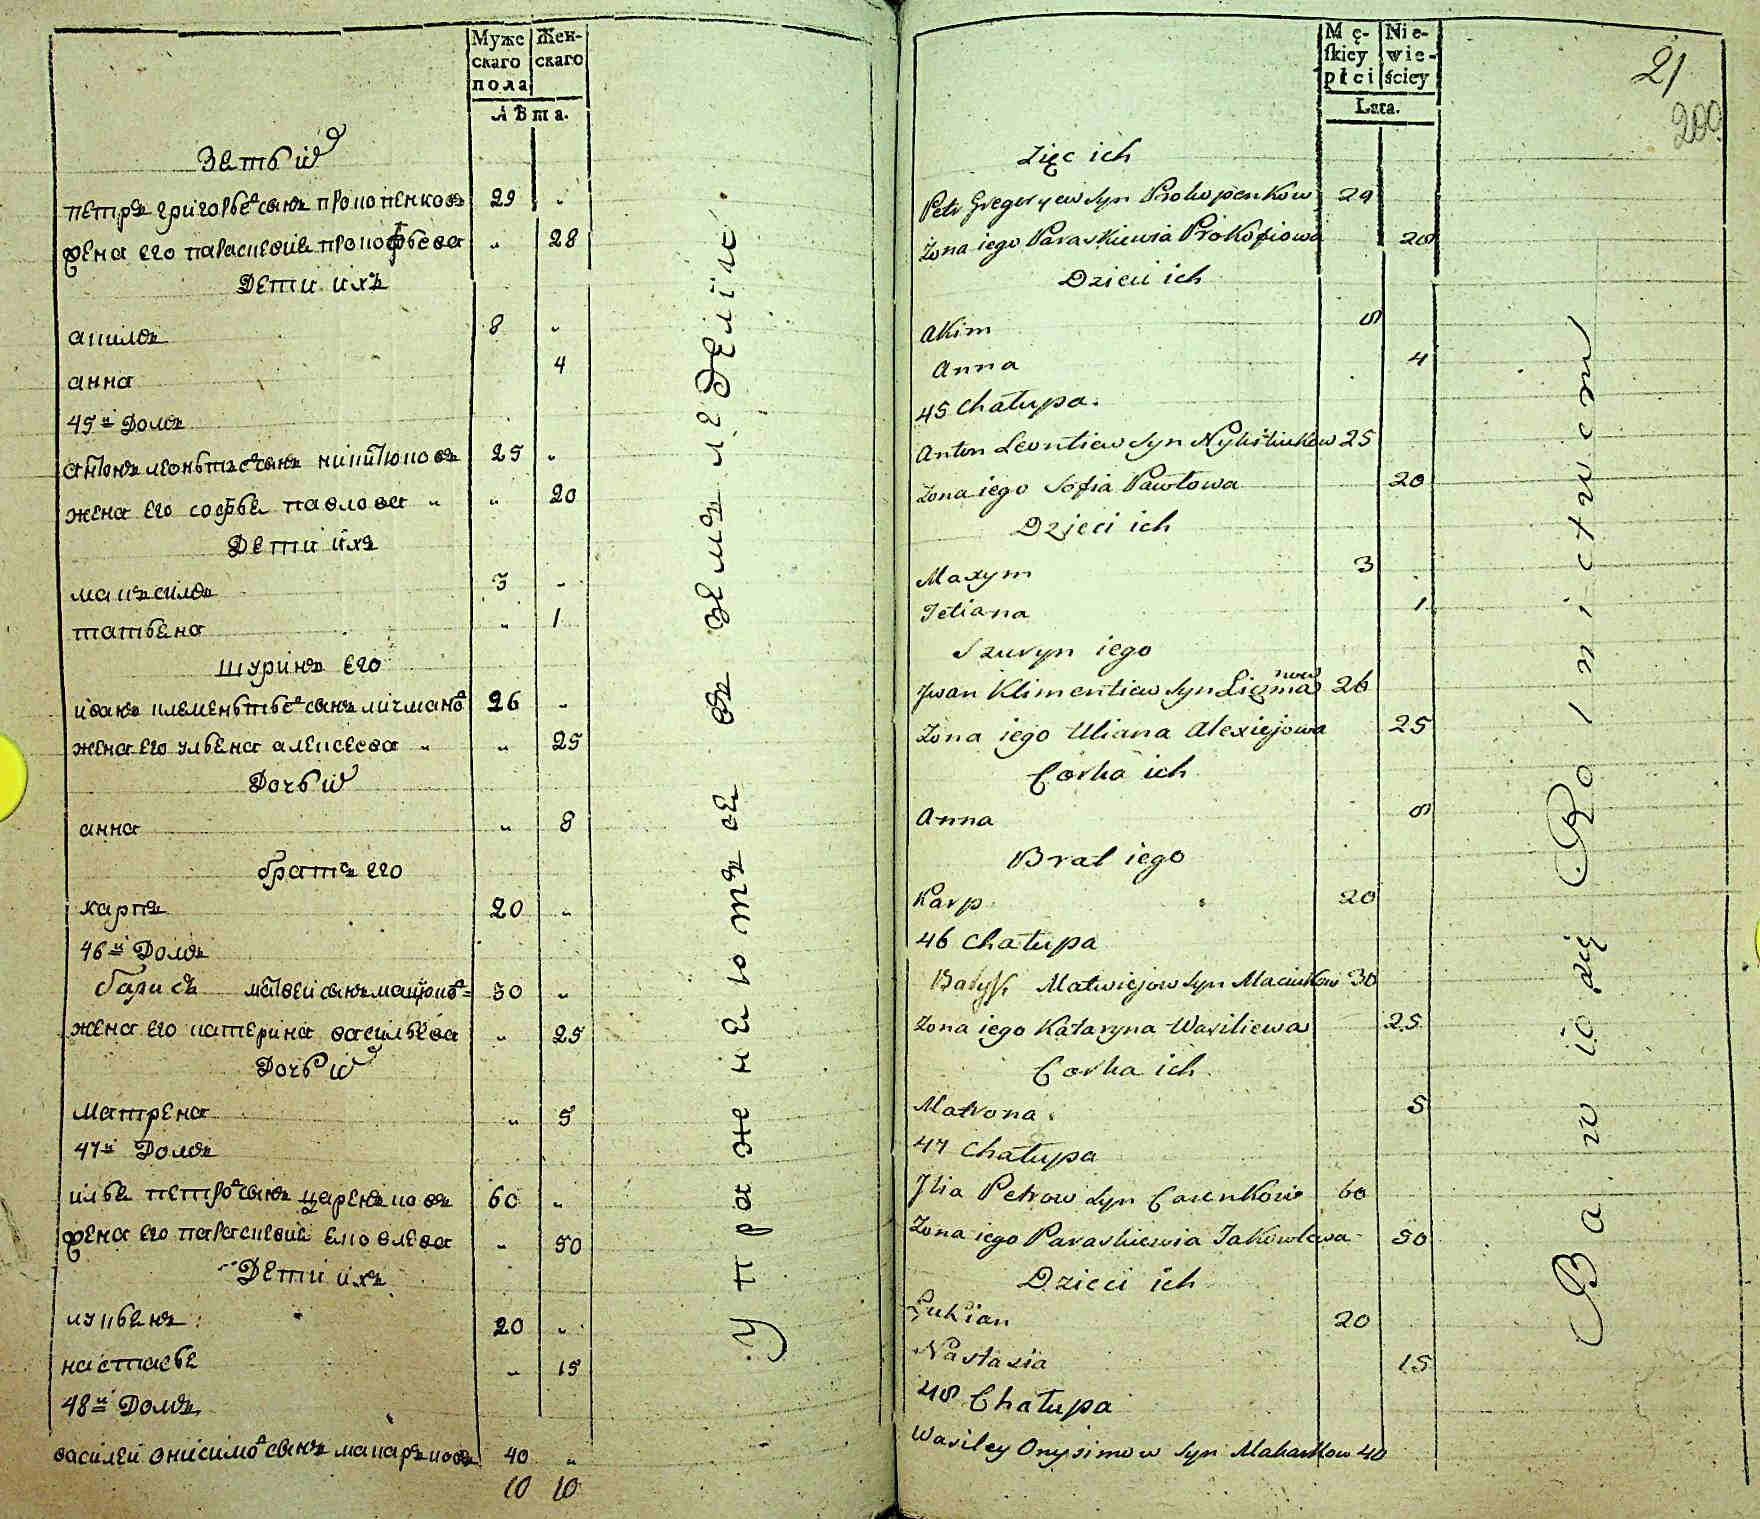 Муже Жен-
скаго скаго
пола
лѣта.
Зеть иⷯ
петръ григорьеⷡ сынъ прокопенковъ 29 „
жена его параскевиѣ прокофьева „ 28
Дети ихъ
акимъ 8 „
анна 4
45й Домъ
антонъ леонтьеⷡ сынъ никитюковъ 25 „
жена его софье павлова „ „ 20
Дети ихъ
макъсимъ 3 „
татьена „ 1
шуринъ его
иванъ клеменьтьеⷡ сынъ личманоⷡ 26 „
жена его ульена алексеева „ „ 25
Дочь иⷯ
анна „ 8
братъ его
карпъ 20 „
46й Домъ
матвеи сынъ мацюкоⷡ 30 „
жена его катерина васильева „ 25
Дочь иⷯ
матрена „ 5
47й Домъ
илье петроⷡ сынъ царенковъ 60 „
жена его параскевиѣ емовлева „ 50
Дети ихъ
лукьенъ 20 „
настасье „ 15
48й Домъ
василей онисимоⷡ сынъ макаръковъ 40 „
10 10
Упражнеютъ се въ земледелие
Mę- Nie-
skiey wie-
płci ściey
Lata.
21
200
Zięc ich
Petr Gregoryew syn Prokopenkow 29
Żona iego Paraskiewia Prokofiowa 28
Dzieci ich
Akim 8
Anna 4
45 Chałupa.
Anton Leontiew syn Nykitiukow 25
Żona iego Sofia Pawłowa 20
Dzieci ich
Maxym 3
Tetiana 1
Szuryn iego
Jwan Klimentiew syn Liczmanow 26
Żona iego Uliana Alexiejowa 25
Corka ich
Anna 8
Brat iego
Karp 20
46 Chałupa
Matwiejow syn Maciukow 30
Żona iego Kataryna Wasiliewa 25
Corka ich
Matrona 5
47 Chałupa
Jlia Petrow syn Carenkow 60
Żona iego Paraskiewia Jakowlewa 50
Dzieci ich
Łukian 20
Nastazia 15
48 Chałupa
Wasiley Onysimow syn Makarkow 40
Bawią się Rolnictwem